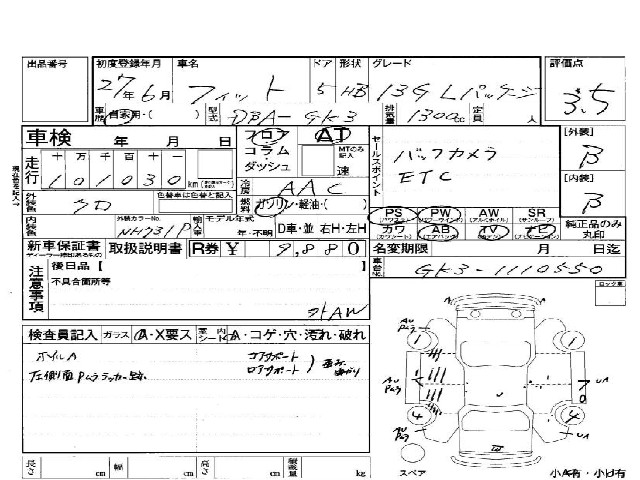 出品番号 初度登録年月 車名 ドア 形状 グレード 評価点
27年 6月 フィット 5 HB 13G Lパッケージ 3.5
車歴 自家用・( ) 型式 DBA-GK3 排気量 1300cc 定員 人
車検 年 月 日 フロア AT
コラム MTのみ記入
ダッシュ 速
セールスポイント
バックカメラ
ETC
[外装]
B
[内装]
B
走行 十万 万 千 百 十 一
101030 km
冷房 AAC
外装色 クロ 色替車は色替と記入
燃料 ガソリン・軽油・( )
PS PW AW SR
(パワステ) (パワーウインドウ) (アルミホイル) (サンルーフ)
カワ AB TV ナビ
(エアバッグ)
純正品のみ丸印
内装色 外装カラーNo. NH731P 輸入車 モデル年式
年・不明 D車・並 右H・左H
新車保証書 取扱説明書 R券 ¥ 9,880 名変期限 月 日迄
注意事項 後日品 [ ]
不具合箇所等
社外AW
車台No. GK3-1110550
ロック車
検査員記入 ガラス A・X要ス 室内シート A・コゲ・穴・汚れ・破れ
ホイルA
コアサポート
左側面
ロアサポート
AU
AU
UA
UA
AU
1
1
4
4
スペア
小A有・小U有
長さ cm 幅 cm 高さ cm 積載量 kg